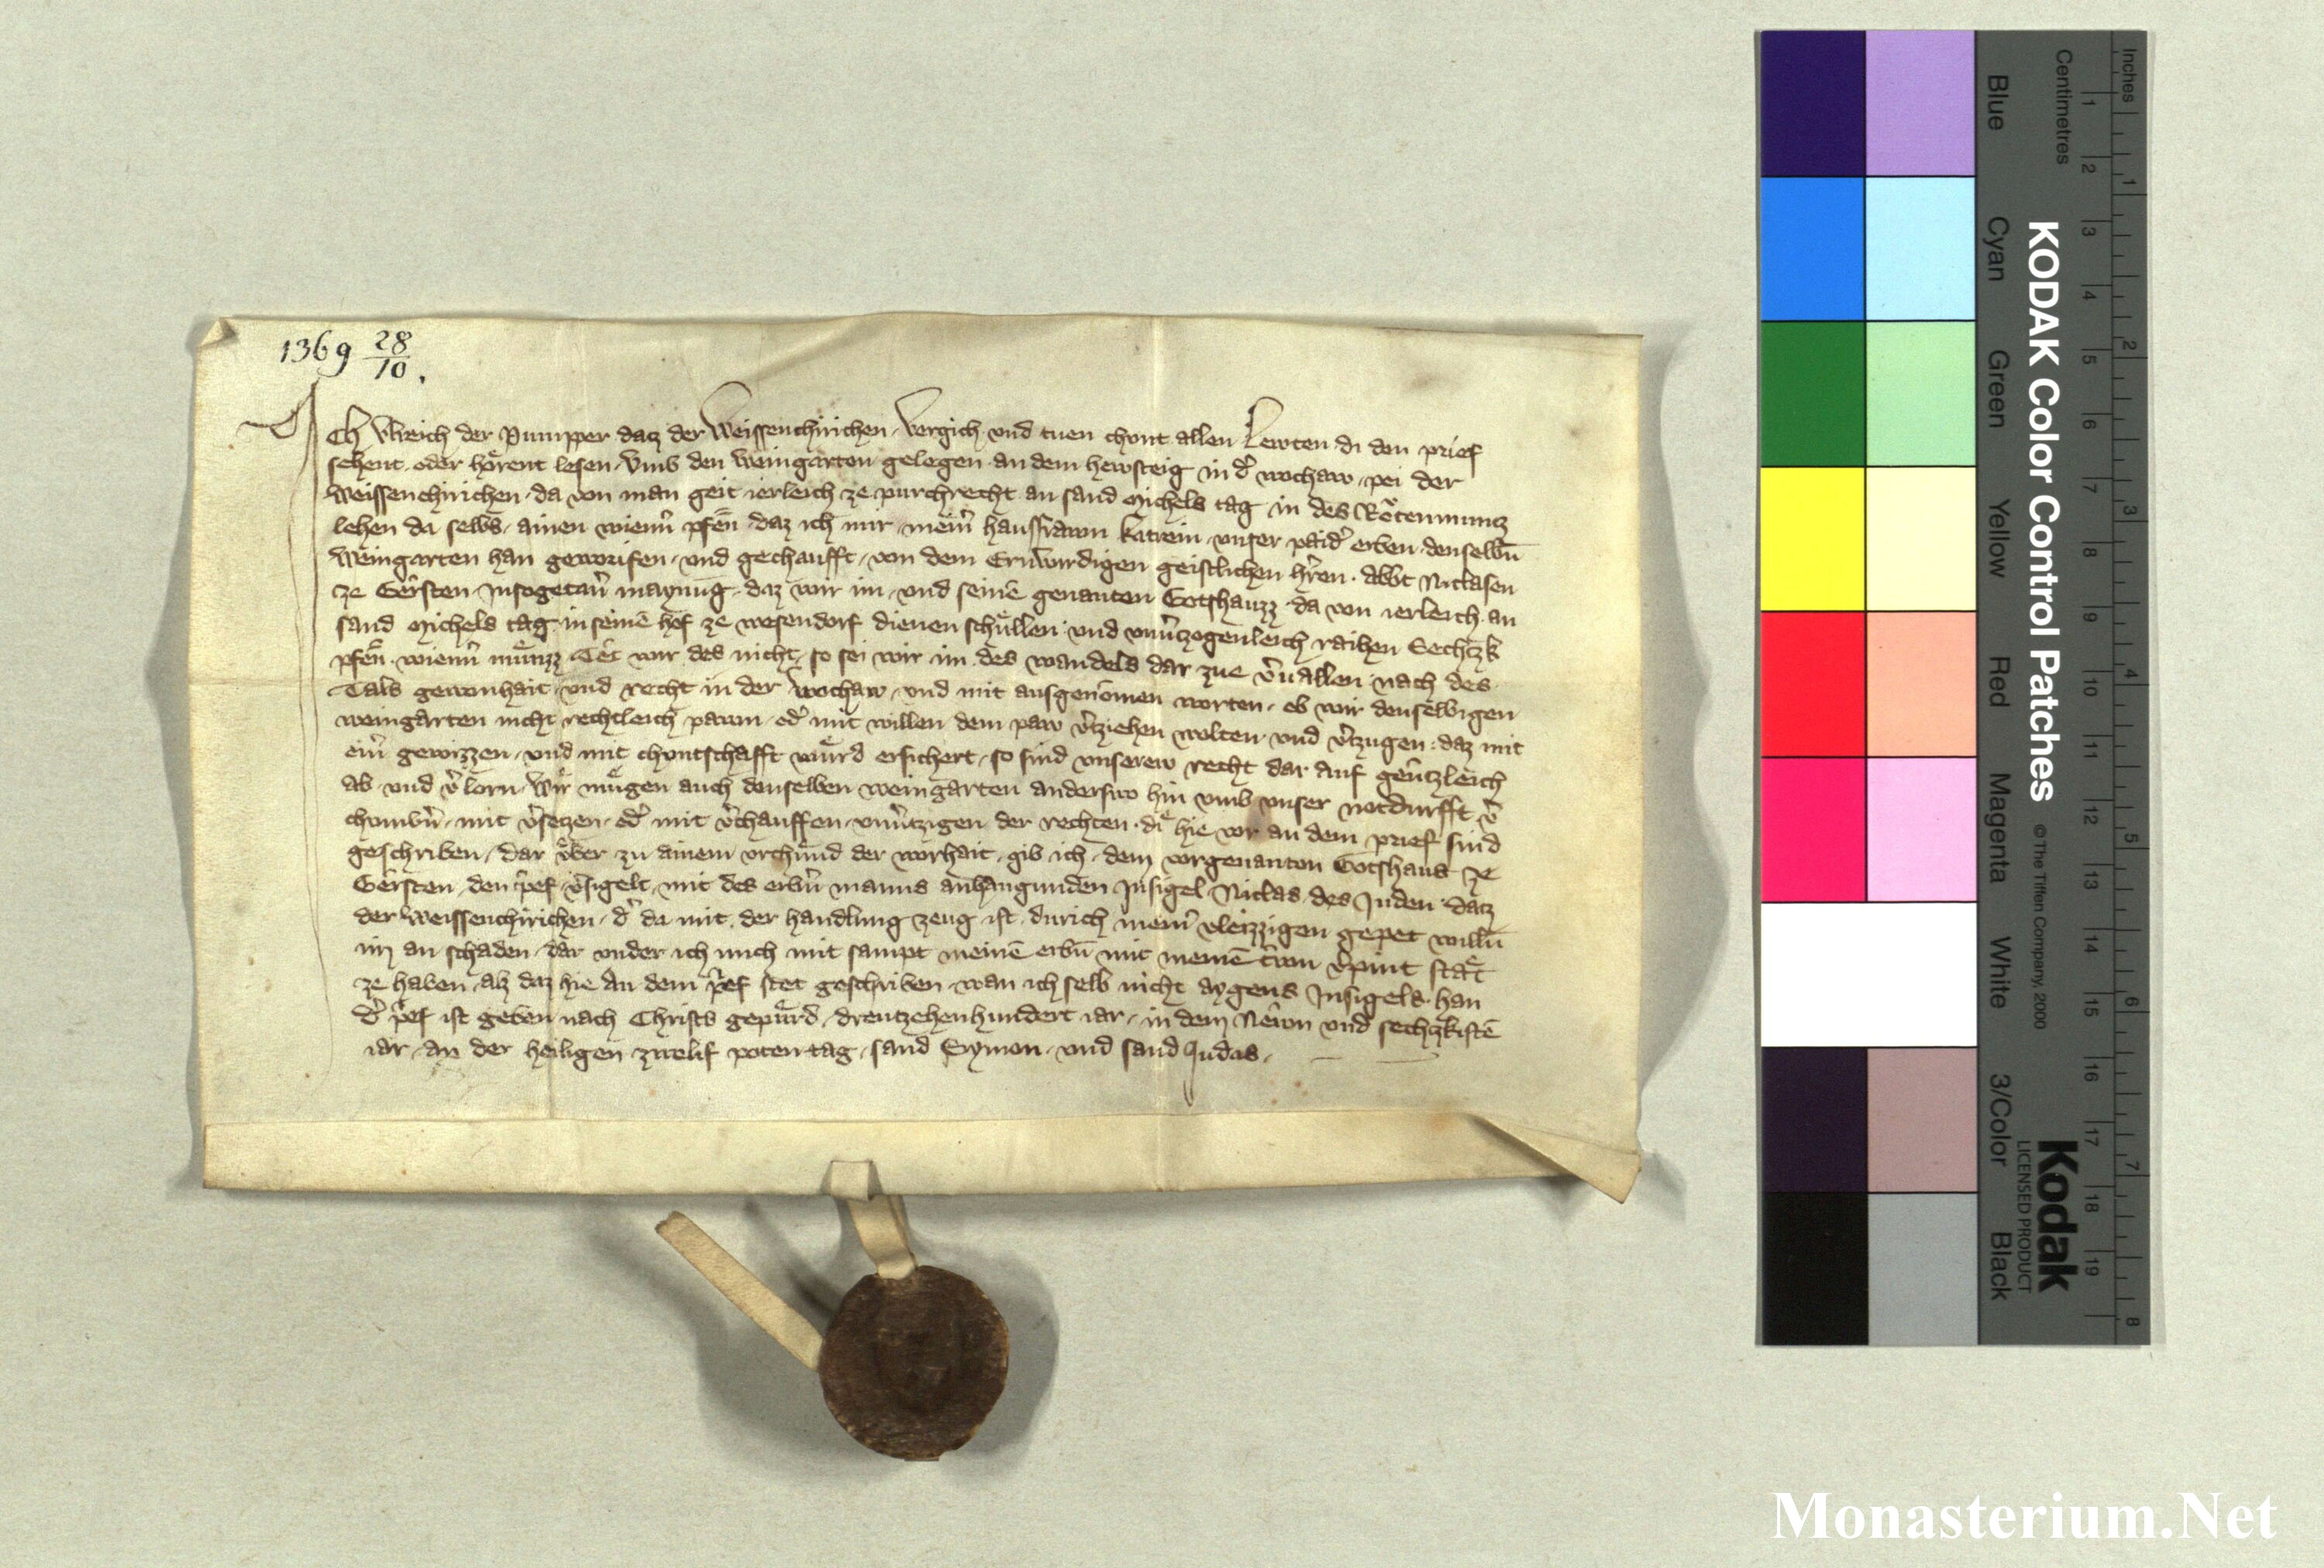 1369 28/10.
Ich Vlreich der Pumpper datz der Weissenchirichen, Vergich und tuen chunt allen Lewten di den prief
sehent oder hörent lesen, Vmb den Weingarten gelegen an dem hewsteig in dˀ wochaw, pei der
Weissenchirichen, da von man geit ierleich ze purchrecht an sand Michels tag in des Rötenmuntz
lehen da selbs, ainen wiennˀ pfen̄, daz ich mir, meinˀ hausfrawn katrein, unser paidˀ erben, denselbn̄
Weingarten han geworifen, und gechaufft, von dem Ernwirdigen geistlichen hˀren, Abbt Niclasen
ze Gërsten, Insogetanˀ maynūg, daz wir im, und seinē genanten Gotshauzz, da von ierleich an
sand Michels tag, in seinē hof ze wesendorf dienen schüllen, und unuˀtzogenleich raihen Sechtzk
pfen̄, wiennˀ münzz, Tët wir des nicht, so sei wir im des wandels dar zue vˀuallen, nach des
Tals gewonhait, und recht in der Wochaw, und mit ausgenomen worten, ob wir denselbigen
weingarten nicht rechtleich pawn, odˀ mit willen dem paw vˀziehen wolten, und vˀtzugen, daz mit
einˀ gewizzen, und mit chuntschafft würd ersichert, so sind unserew recht dar auf gentzleich
ab, und vˀlorn, Wir mügen auch denselben weingarten anderswo hin umb unser notdurfft vˀ
chumbn̄, mit vˀsetzen, odˀ mit vˀchauffen, unuˀtzigen der rechten, di hie vor an dem prief sind
geschriben, Dar über zu ainem urchünd der worhait, gib ich, dem vorgenanten Gotshaus ze
Gërsten, den pˀef, vˀsigelt, mit des erbˀn manns anhangunden Insigel, Niclas, des Juden, datz
der Weissenchirichen, dˀ da mit, der handlung zeug ist, durich meinˀ vleizzigen gepet willn̄
im an schaden, dar under ich mich mit sampt meinē erbn̄ mit meinē trˀwn vˀpint stët
ze haben, alz daz hie an dem pˀef stet geschriben, wan ich selb nicht aygens Insigels han
dˀ pˀef ist geben nach Christs gepürd, dreutzehenhundert iar, in dem Newn und sechtzkistē
iar, an der heiligen zwelif poten tag, sand Symon, und sand Judas.
Inches
Centimetres
1 2 3 4 5 6 7 8
1 2 3 4 5 6 7 8 9 10 11 12 13 14 15 16 17 18 19
KODAK Color Control Patches
© The Tiffen Company, 2000
Kodak
LICENSED PRODUCT
Blue
Cyan
Green
Yellow
Red
Magenta
White
3/Color
Black
Monasterium.Net